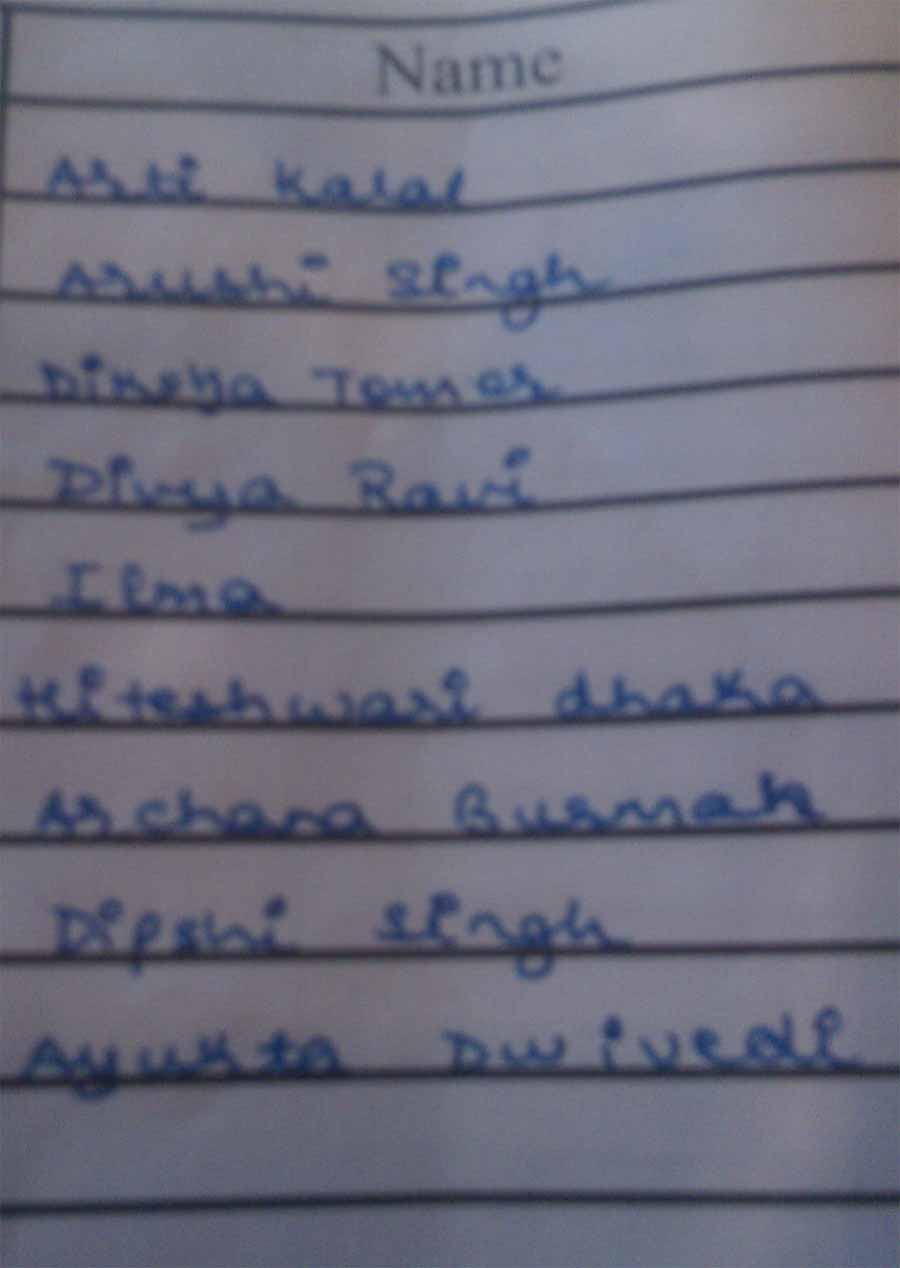 Name
Arti Kalal
Arushi Singh
Diksha Tomar
Divya Ravi
Ilma
Hiteshwari dhaka
Archana Burmak
Dipshi Singh
Ayukta Dwivedi